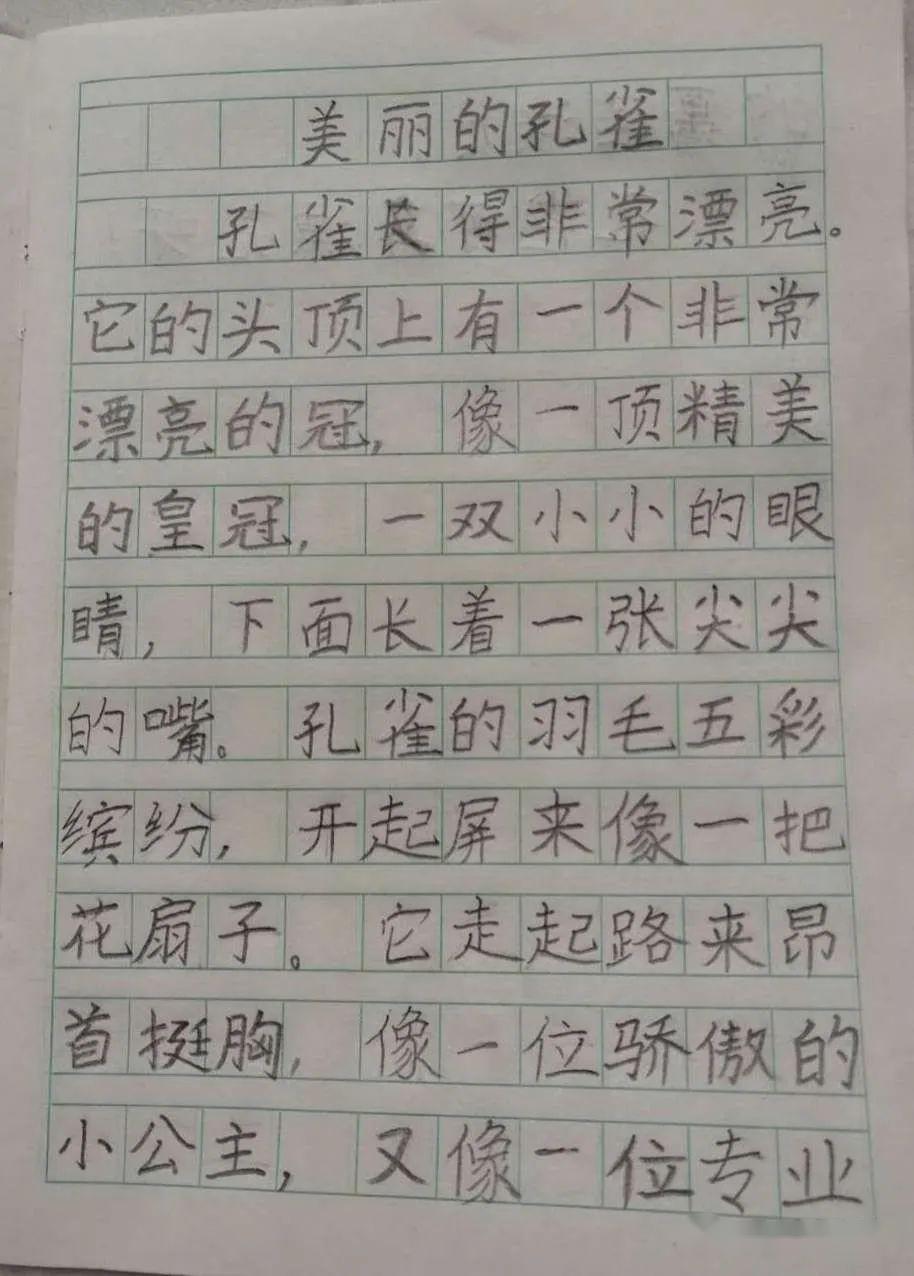 美丽的孔雀
孔雀长得非常漂亮。
它的头顶上有一个非常
漂亮的冠,像一顶精美
的皇冠,一双小小的眼
睛,下面长着一张尖尖
的嘴。孔雀的羽毛五彩
缤纷,开起屏来像一把
花扇子。它走起路来昂
首挺胸,像一位骄傲的
小公主,又像一位专业